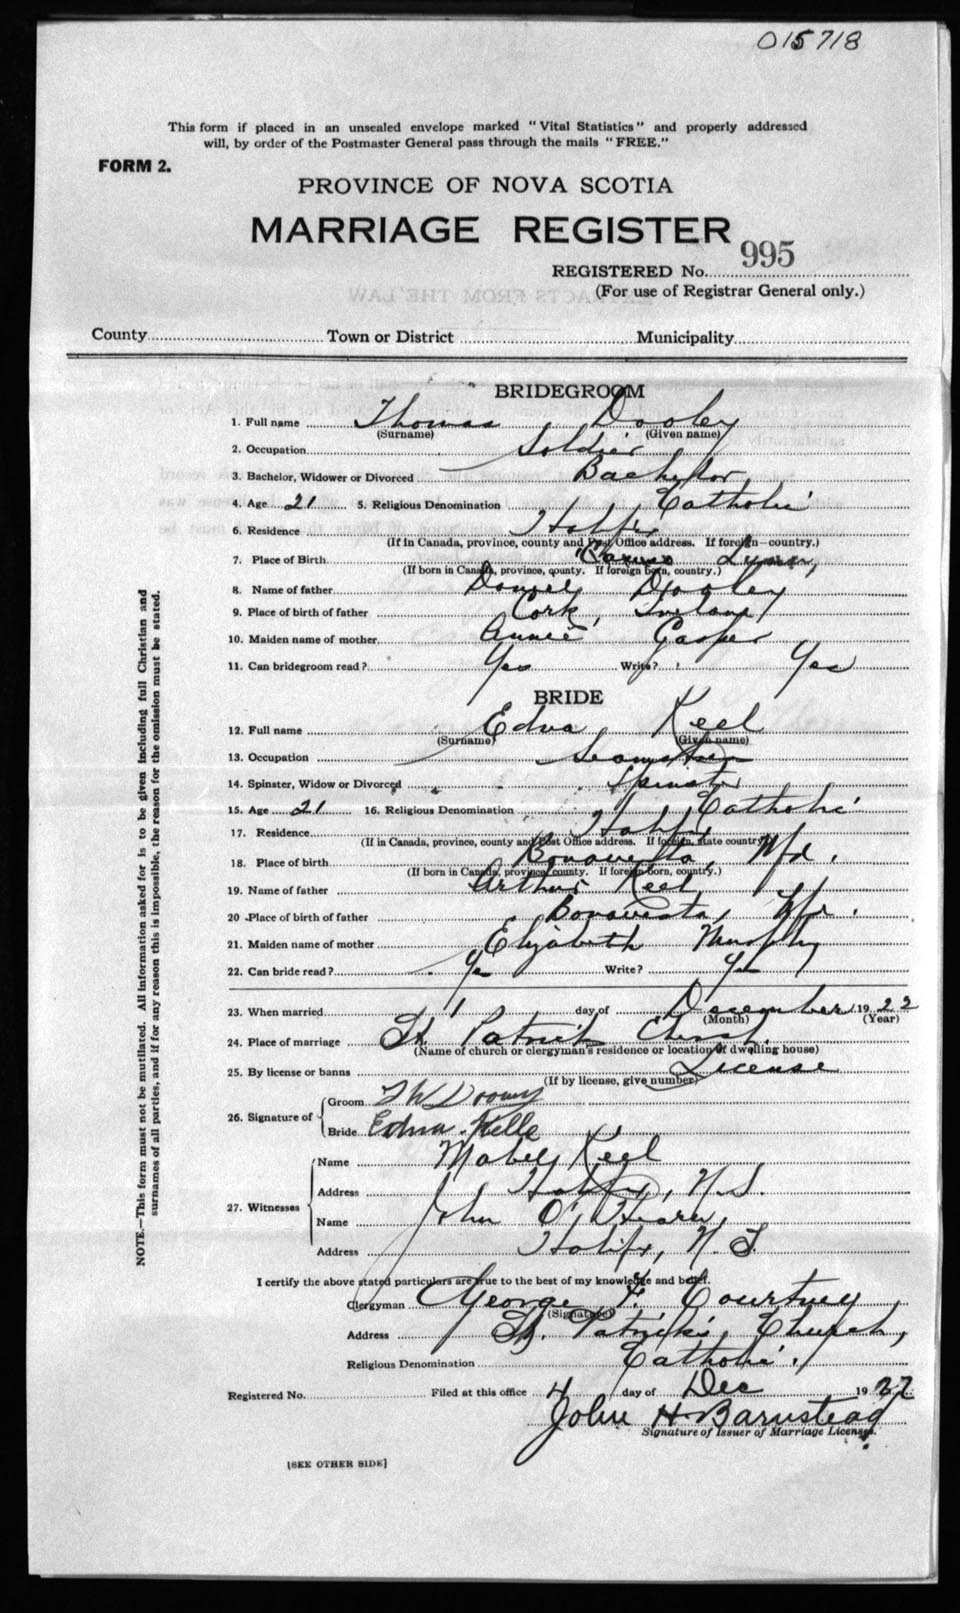 015718
This form if placed in an unsealed envelope marked "Vital Statistics" and properly addressed
will, by order of the Postmaster General pass through the mails "FREE."
FORM 2.
PROVINCE OF NOVA SCOTIA
MARRIAGE REGISTER
REGISTERED No. 995
(For use of Registrar General only.)
County Town or District Municipality
BRIDEGROOM
1. Full name Thomas Dooley
(Surname) (Given name)
2. Occupation Soldier
3. Bachelor, Widower or Divorced Bachelor
4. Age 21 5. Religious Denomination Catholic
6. Residence Halifx
(If in Canada, province, county and Post Office address. If foreign—country.)
7. Place of Birth
(If born in Canada, province, county. If foreign born, country.)
8. Name of father Daniel Dooley
9. Place of birth of father Cork, Ireland
10. Maiden name of mother Annie Gasper
11. Can bridegroom read? Yes Write? Yes
BRIDE
12. Full name Edna Keel
(Surname) (Given name)
13. Occupation
14. Spinster, Widow or Divorced Spinster
15. Age 21 16. Religious Denomination Catholic
17. Residence Halifx
(If in Canada, province, county and Post Office address. If foreign, state country)
18. Place of birth Bonavista, Nfd.
(If born in Canada, province county. If foreign born, country.)
19. Name of father Arthur Keel
20. Place of birth of father Bonavista, Nfd.
21. Maiden name of mother Elizabeth Murphy
22. Can bride read? Yes Write? Yes
23. When married 1 day of December 1922
(Month) (Year)
24. Place of marriage St Patrick Church
(Name of church or clergyman's residence or location of dwelling house)
25. By license or banns License
(If by license, give number)
26. Signature of
Groom T W
Bride Edna Kelle
27. Witnesses
Name Mabel Keel
Address Halifx, N.S.
Name John O'Hearn
Address Halifx, N.S.
I certify the above stated particulars are true to the best of my knowledge and belief.
Clergyman George F. Courtney
(Signature)
Address St. Patrick's Church,
Religious Denomination Catholic.
Registered No. Filed at this office 4 day of Dec 1922
John H Barnstead
Signature of Issuer of Marriage Licenses.
[SEE OTHER SIDE]
NOTE.—This form must not be mutilated. All information asked for is to be given including full Christian and
surnames of all parties, and if for any reason this is impossible, the reason for the omission must be stated.